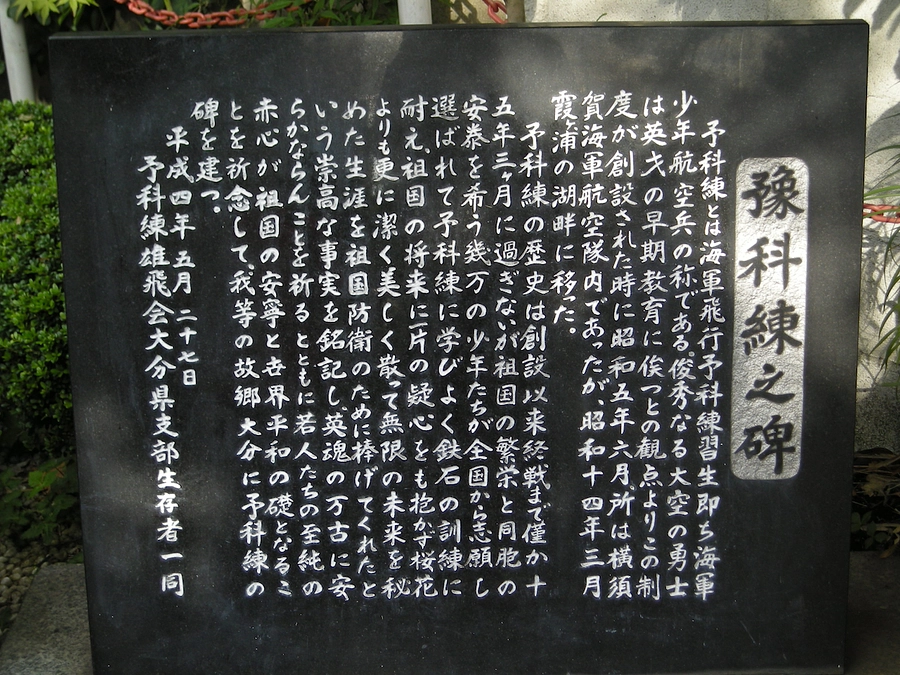 豫科練之碑
予科練とは海軍飛行予科練習生即ち海軍
少年航空兵の称である。俊秀なる大空の勇士
は英才の早期教育に俟つとの観点よりこの制
度が創設された時に昭和五年六月、所は横須
賀海軍航空隊内であったが、昭和十四年三月
霞ヶ浦の湖畔に移った。
予科練の歴史は創設以来終戦まで僅か十
五年三ヶ月に過ぎないが祖国の繁栄と同胞の
安泰を希う幾万の少年たちが全国から志願し
選ばれて予科練に学びよく鉄石の訓練に
耐え、祖国の将来に一片の疑心をも抱かず桜花
よりも更に潔く美しく散って無限の未来を秘
めた生涯を祖国防衛のために捧げてくれたと
いう崇高な事実を銘記し、英魂の万古に安
らかならんことを祈るとともに若人たちの至純の
赤心が祖国の安寧と世界平和の礎となるこ
とを祈念して、我等の故郷大分に予科練の
碑を建つ。
平成四年五月二十七日
予科練雄飛会大分県支部生存者一同